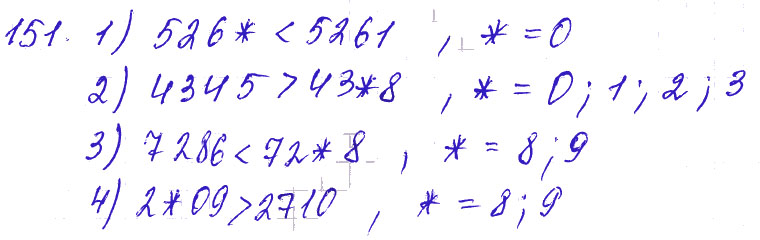 151. 1) 526* < 5261 , * = 0
2) 4345 > 43*8 , * = 0; 1; 2; 3
3) 7286 < 72*8 , * = 8; 9
4) 2*09 > 2710 , * = 8; 9